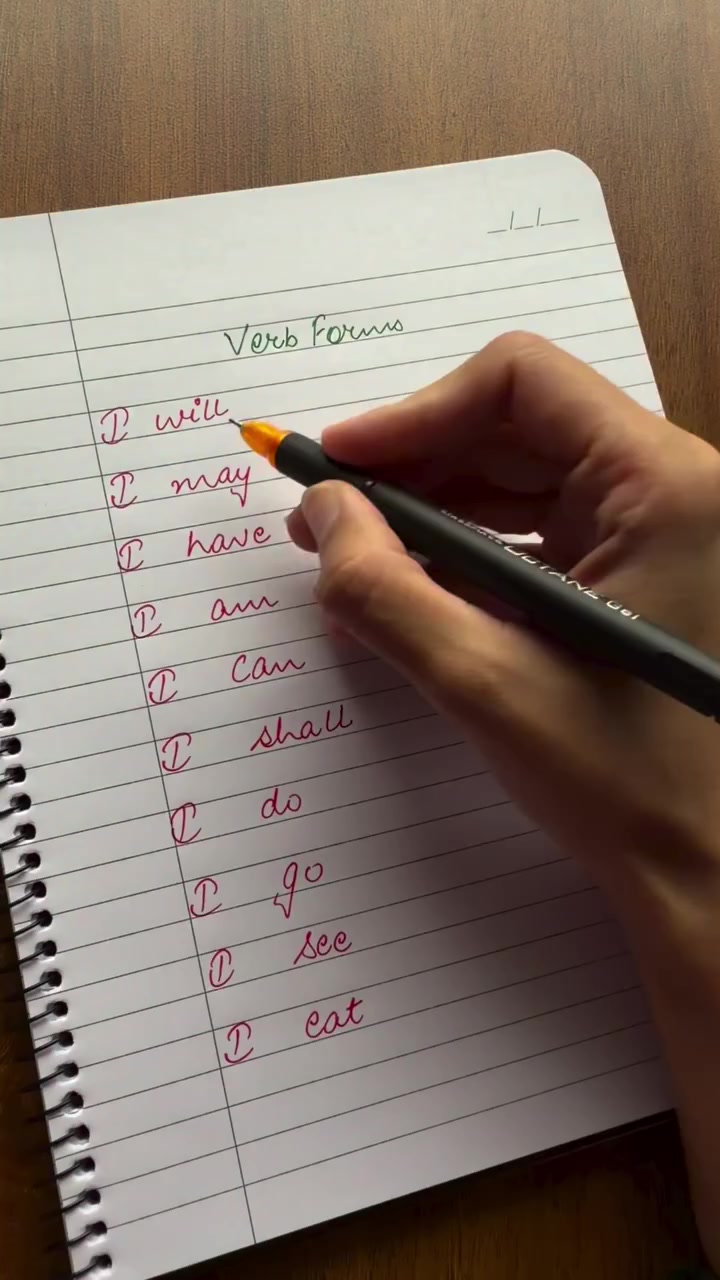 _/_/__
Verb Forms
I will
I may
I have
I am
I can
I shall
I do
I go
I see
I eat
OCTANE GEL